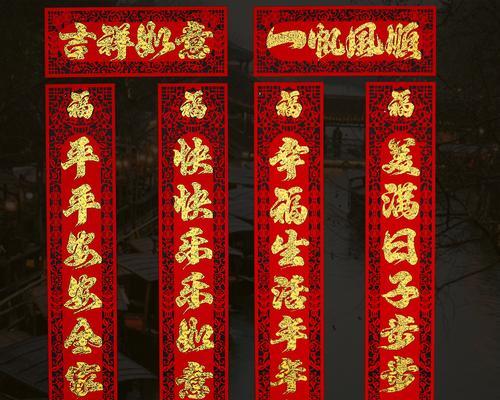 吉祥如意
一帆風順
福平平安安全家
福快快乐乐如意
福幸福生活年年
福美满日子步步